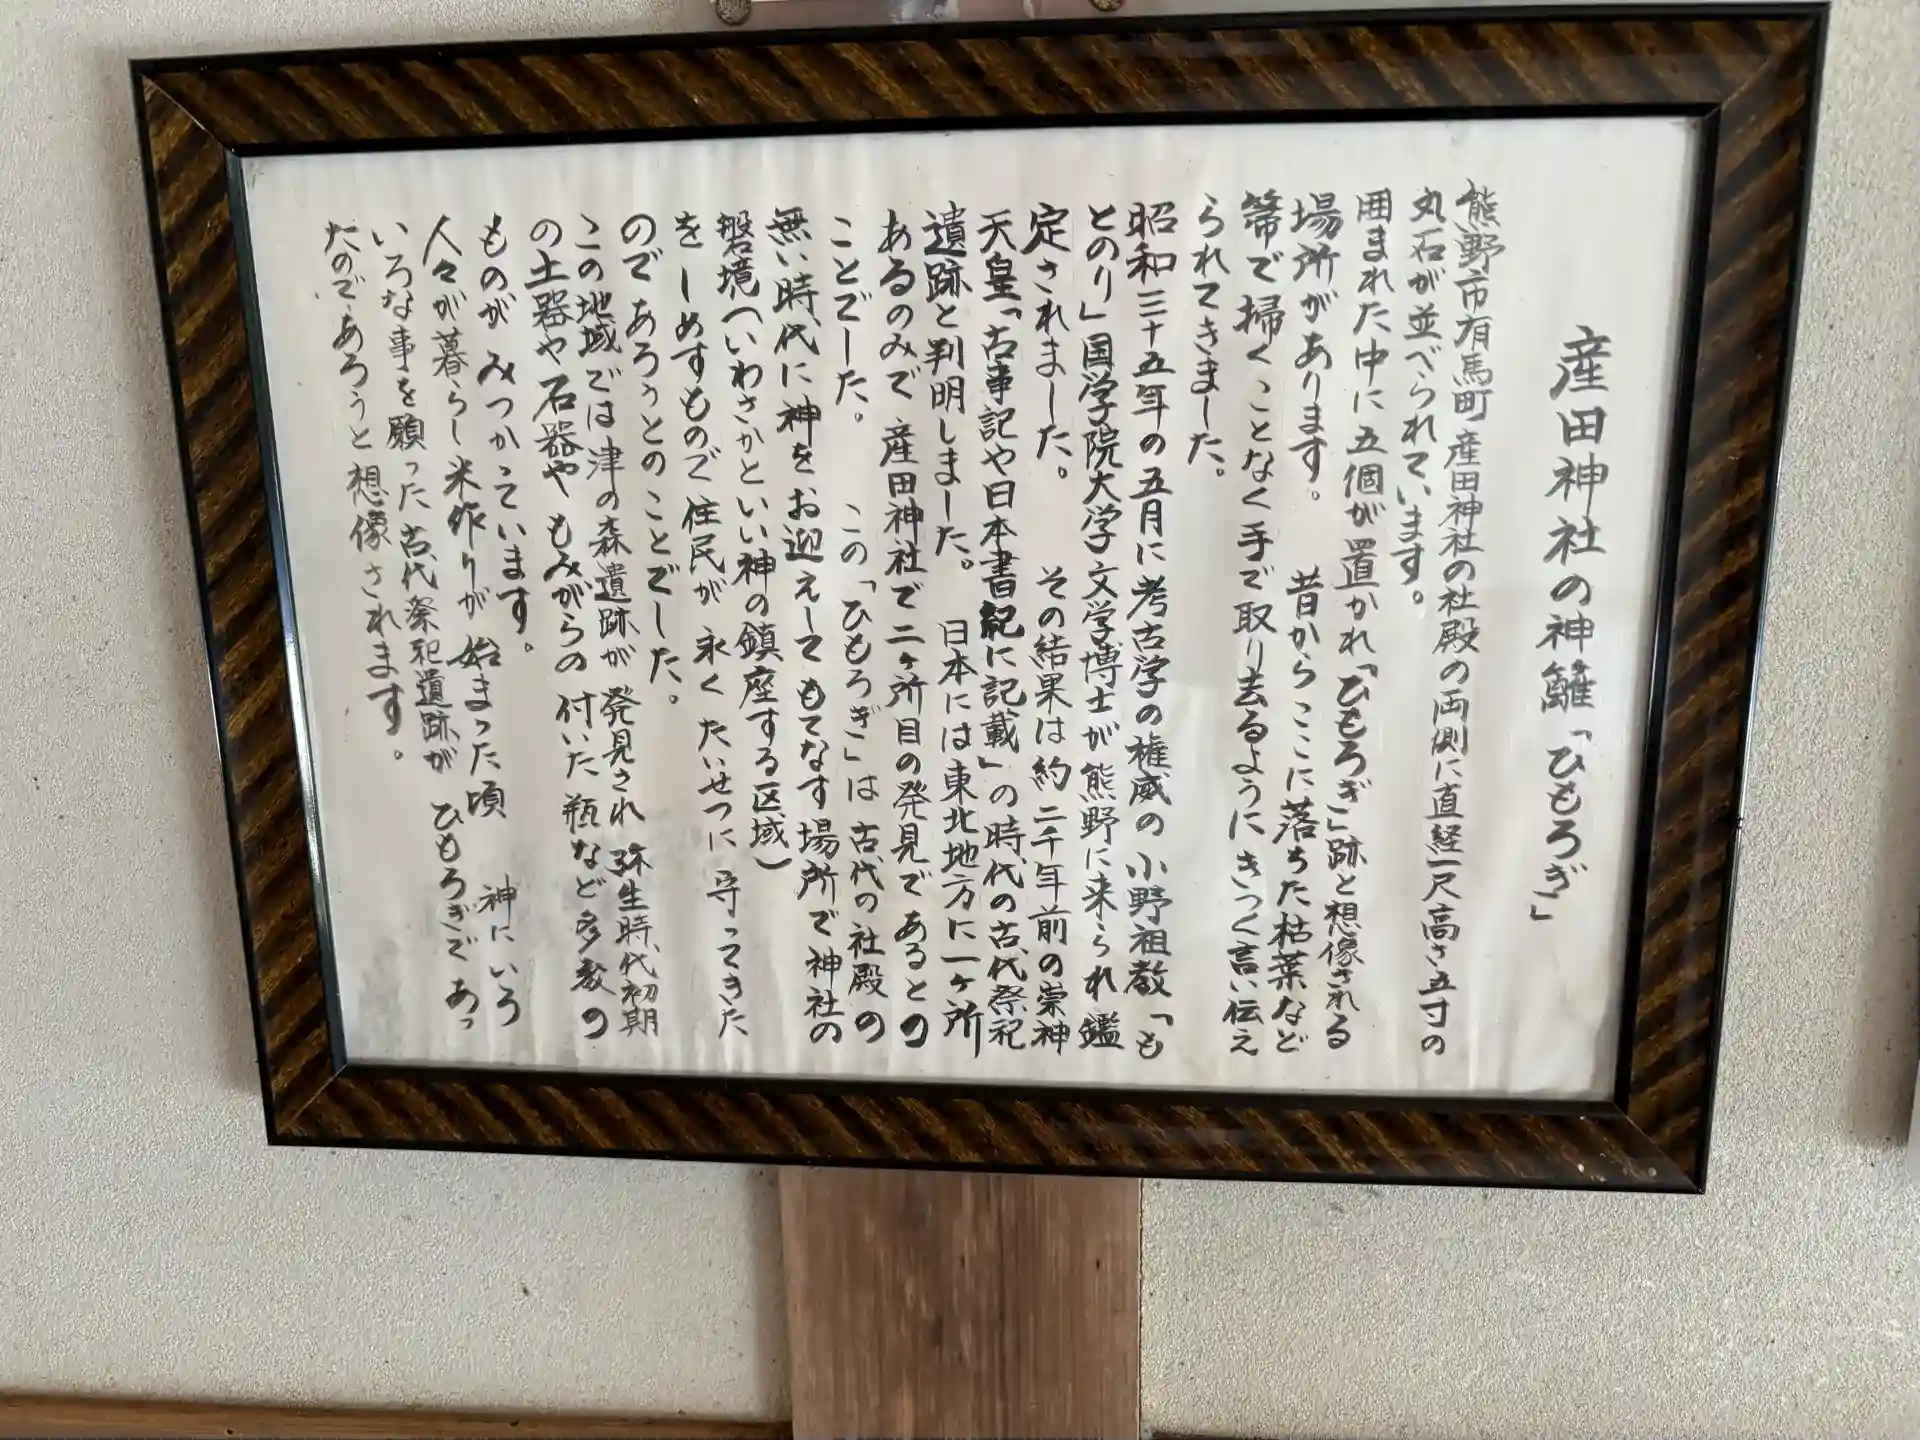 産田神社の神籬「ひもろぎ」
熊野市有馬町産田神社の社殿の両側に直経一尺高さ五寸の
丸石が並べられています。
囲まれた中に五個が置かれ「ひもろぎ」跡と想像される
場所があります。 昔からここに落ちた枯葉など
箒で掃くことなく手で取り去るようにきつく言い伝え
られてきました。
昭和三十五年の五月に考古学の権威の小野祖教「も
とのり」国学院大学文学博士が熊野に来られ鑑
定されました。 その結果は約二千年前の崇神
天皇「古事記や日本書紀に記載」の時代の古代祭祀
遺跡と判明しました。 日本には東北地方に一ヶ所
あるのみで産田神社で二ヶ所目の発見であるとの
ことでした。 この「ひもろぎ」は古代の社殿の
無い時代に神をお迎えしてもてなす場所で神社の
磐境(いわさかといい神の鎮座する区域)
をしめすもので住民が永くたいせつに守ってきた
のであろうとのことでした。
この地域では津の森遺跡が発見され弥生時代初期
の土器や石器やもみがらの付いた瓶など多数の
ものがみつかっています。
人々が暮らし米作りが始まった頃 神にいろ
いろな事を願った古代祭祀遺跡がひもろぎであっ
たのであろうと想像されます。